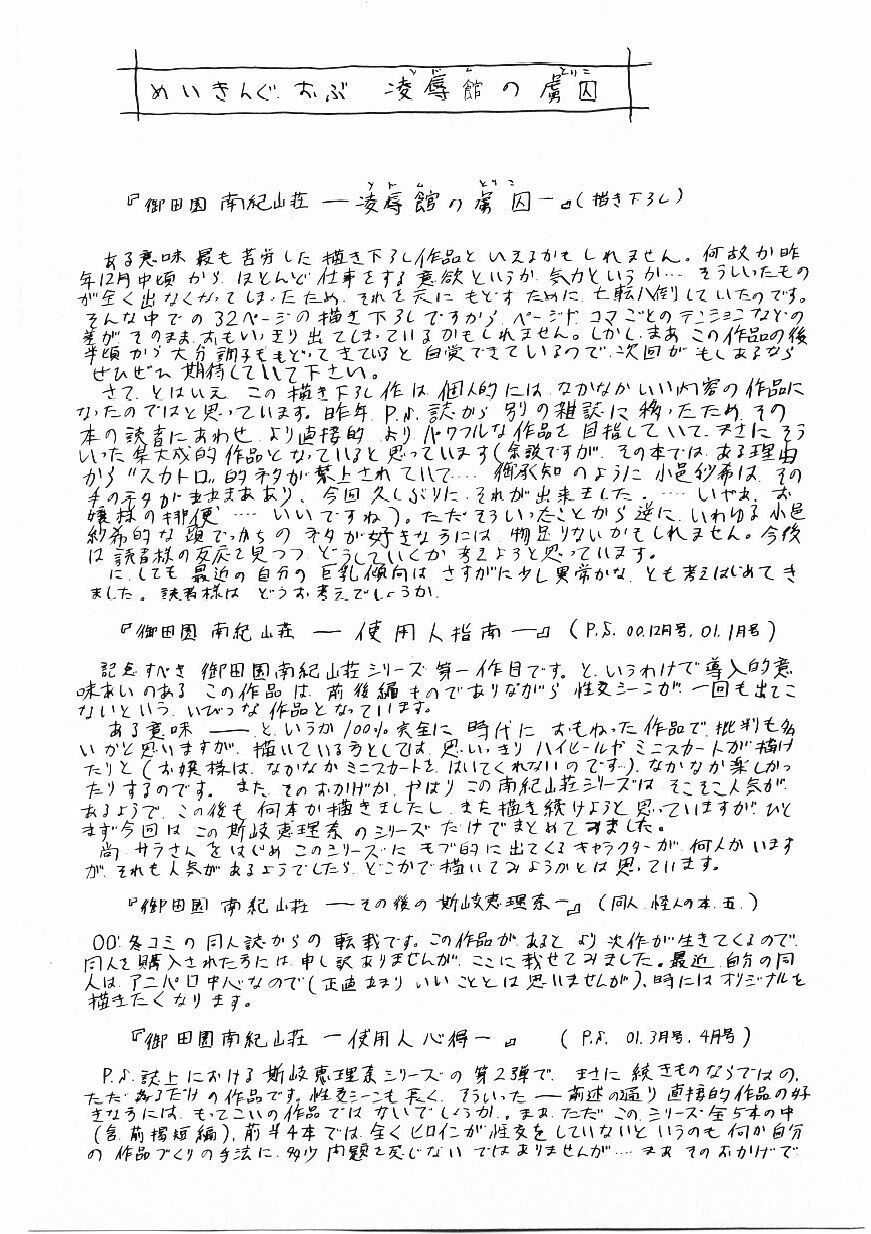 めいきんぐ おぶ 凌辱館の虜囚
『御田園 南紀山荘 ―凌辱館の虜囚―』(描き下ろし)
ある意味 最も苦労した描き下ろし作品といえるかもしれません。何故か昨
年12月中頃から、ほとんど仕事をする意欲というか、気力というか… そういったもの
が全く出なくなってしまったため、それを元にもどすために 七転八倒していたのです。
そんな中での32ページの描き下ろしですから、ページや、コマごとのテンションなどの
差が、そのまま、おもいっきり出てしまっているかもしれません。しかし、まあ この作品の後
半頃から大分調子ももどってきていると自覚できているので、次回が もしあるなら
ぜひぜひ 期待していて下さい。
さて、とはいえ この描き下ろし作は、個人的には、なかなかいい内容の作品に
なったのではと思っています。昨年、P.S.誌から 別の雑誌に移ったため、その
本の読者にあわせ、より直接的、よりパワフルな作品を目指していて、まさにそう
いった集大成的作品となっていると思っています(余談ですが、その本では、ある理由
から“スカトロ”的ネタが禁止されていて…、御承知のように小邑紗希は、その
手のネタがままあり、今回久しぶりに、それが出来ました。… いやぁ、お
嬢様の排便、… いいですね)。ただそういったことから逆に、いわゆる小邑
紗希的な頭でっかちのネタが好きな方には、物足りないかもしれません。今後
は読者様の反応を見つつ、どうしていくか 考えようと思っています。
に、しても 最近の自分の巨乳傾向は、さすがに少し異常かな、とも考えはじめてき
ました。読者様は どうお考えでしょうか。
『御田園 南紀山荘 ― 使用人指南 ―』(P.S. 00.12月号, 01.1月号)
記念すべき 御田園南紀山荘シリーズ第一作目です。と、いうわけで導入的意
味あいのある この作品は、前後編ものでありながら 性交シーンが、一回も出てこ
ないという、いびつな作品となっています。
ある意味 ―― と、いうか100%完全に 時代に おもねった作品で、批判も多
いかと思いますが、描いている方としては、思いっきり ハイヒールや ミニスカートが描け
たりと(お嬢様は、なかなかミニスカートを、はいてくれないのです…)、なかなか楽しかっ
たりするのです。また、そのおかげか、やはりこの南紀山荘シリーズは、そこそこ人気が
あるようで、この後も何本か描きましたし、また描き続けようと思っていますが、ひと
まず今回は この斯岐恵理奈のシリーズだけでまとめてみました。
尚、サラさんをはじめ このシリーズに モブ的に出てくるキャラクターが、何人かいます
が、それも人気があるようでしたら、どこかで描いてみようかとは 思っています。
『御田園 南紀山荘 ―その後の斯岐恵理奈―』(同人、怪人の本.五.)
00'.冬コミの同人誌からの転載です。この作品が、あると より次作が生きてくるので、
同人を購入された方には、申し訳ありませんが、ここに載せてみました。最近、自分の同
人は、アニパロ中心なので(正直あまりいいこととは思いませんが)、時にはオリジナルを
描きたくなります。
『御田園南紀山荘 ―使用人心得―』 (P.S. 01.3月号,4月号)
P.S.誌上における斯岐恵理奈シリーズの第2弾で、まさに 続きものならではの、
ただ、あるだけの作品です。性交シーンも長く、そういった ― 前述の通り直接的作品の好
きな方には、もってこいの作品ではないでしょうか。まあ、ただこの、シリーズ全5本の中
(含、前掲短編)、前半4本では、全くヒロインが性交をしていないというのも、何か自分
の作品づくりの手法に、多少問題を感じないではありませんが… まあ そのおかげで